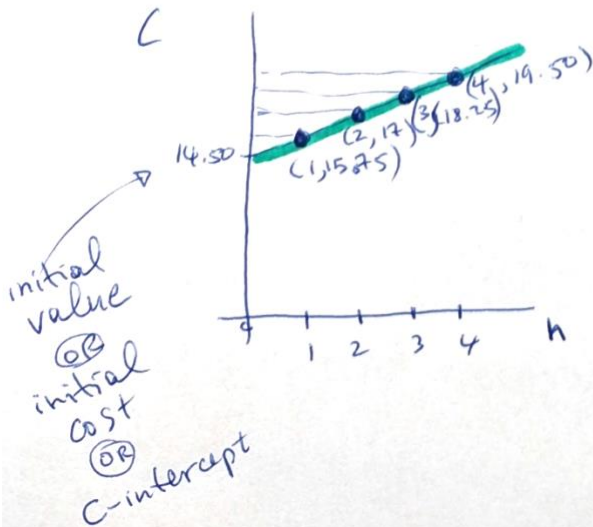 C
(4, 19.50)
(3, 18.25)
(2, 17)
(1, 15.75)
14.50
initial
value
OR
initial
cost
OR
C-intercept
1 2 3 4 n